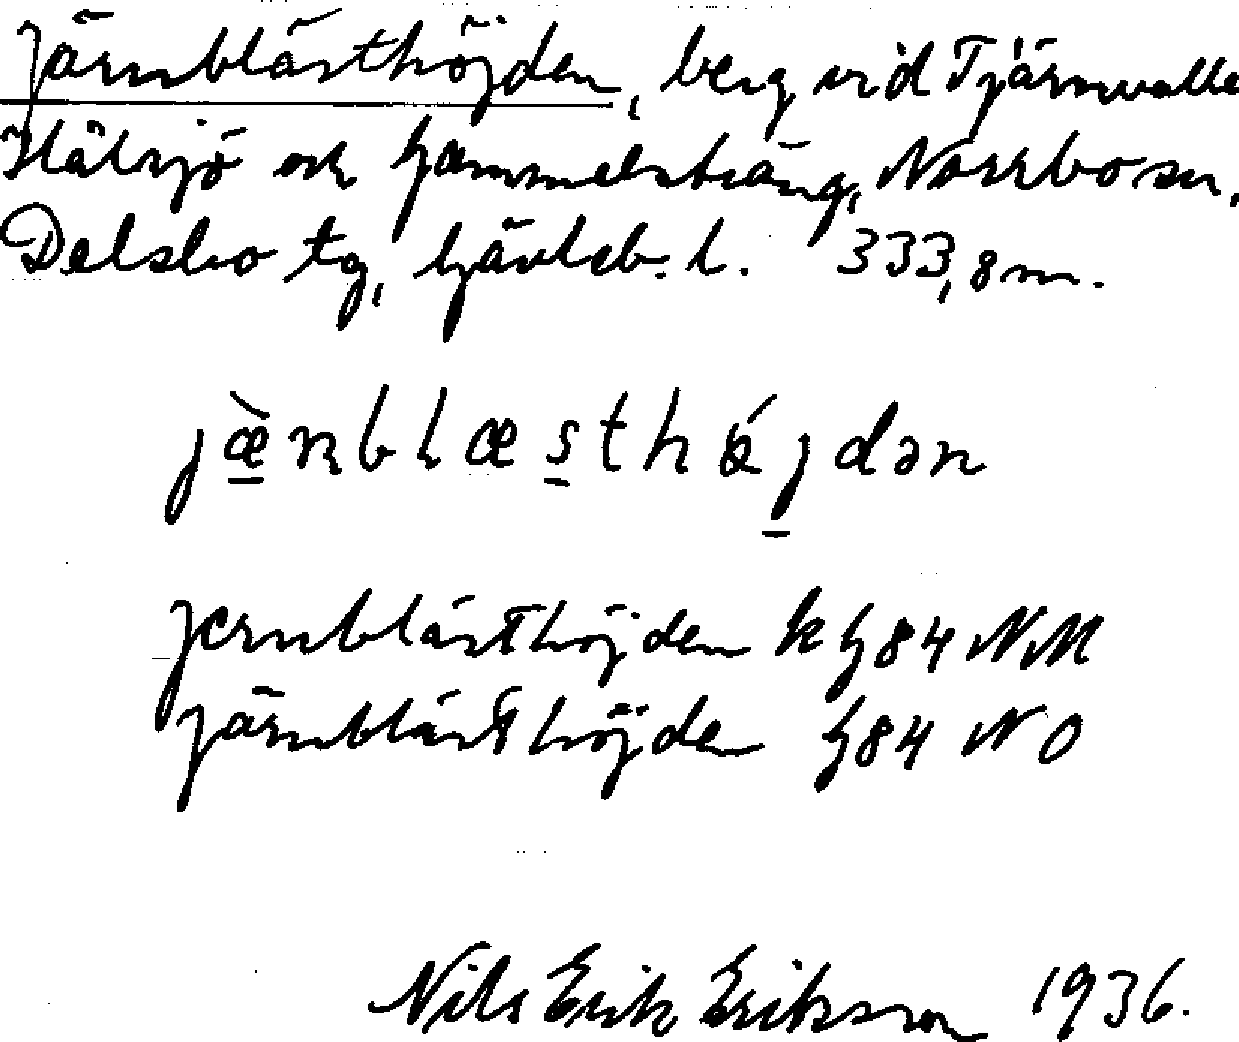 Järnblästhöjden, berg vid Tjärnvalle
Hålsjö och Gammelsträng, Norrbo sn,
Delsbo tg, Gävleb. l. 333,8 m.
jæ̀nblæsthǿjdən
Jernblästhöjden k G84 NM
Järnblästhöjden G84 NO
Nils Erik Eriksson 1936.